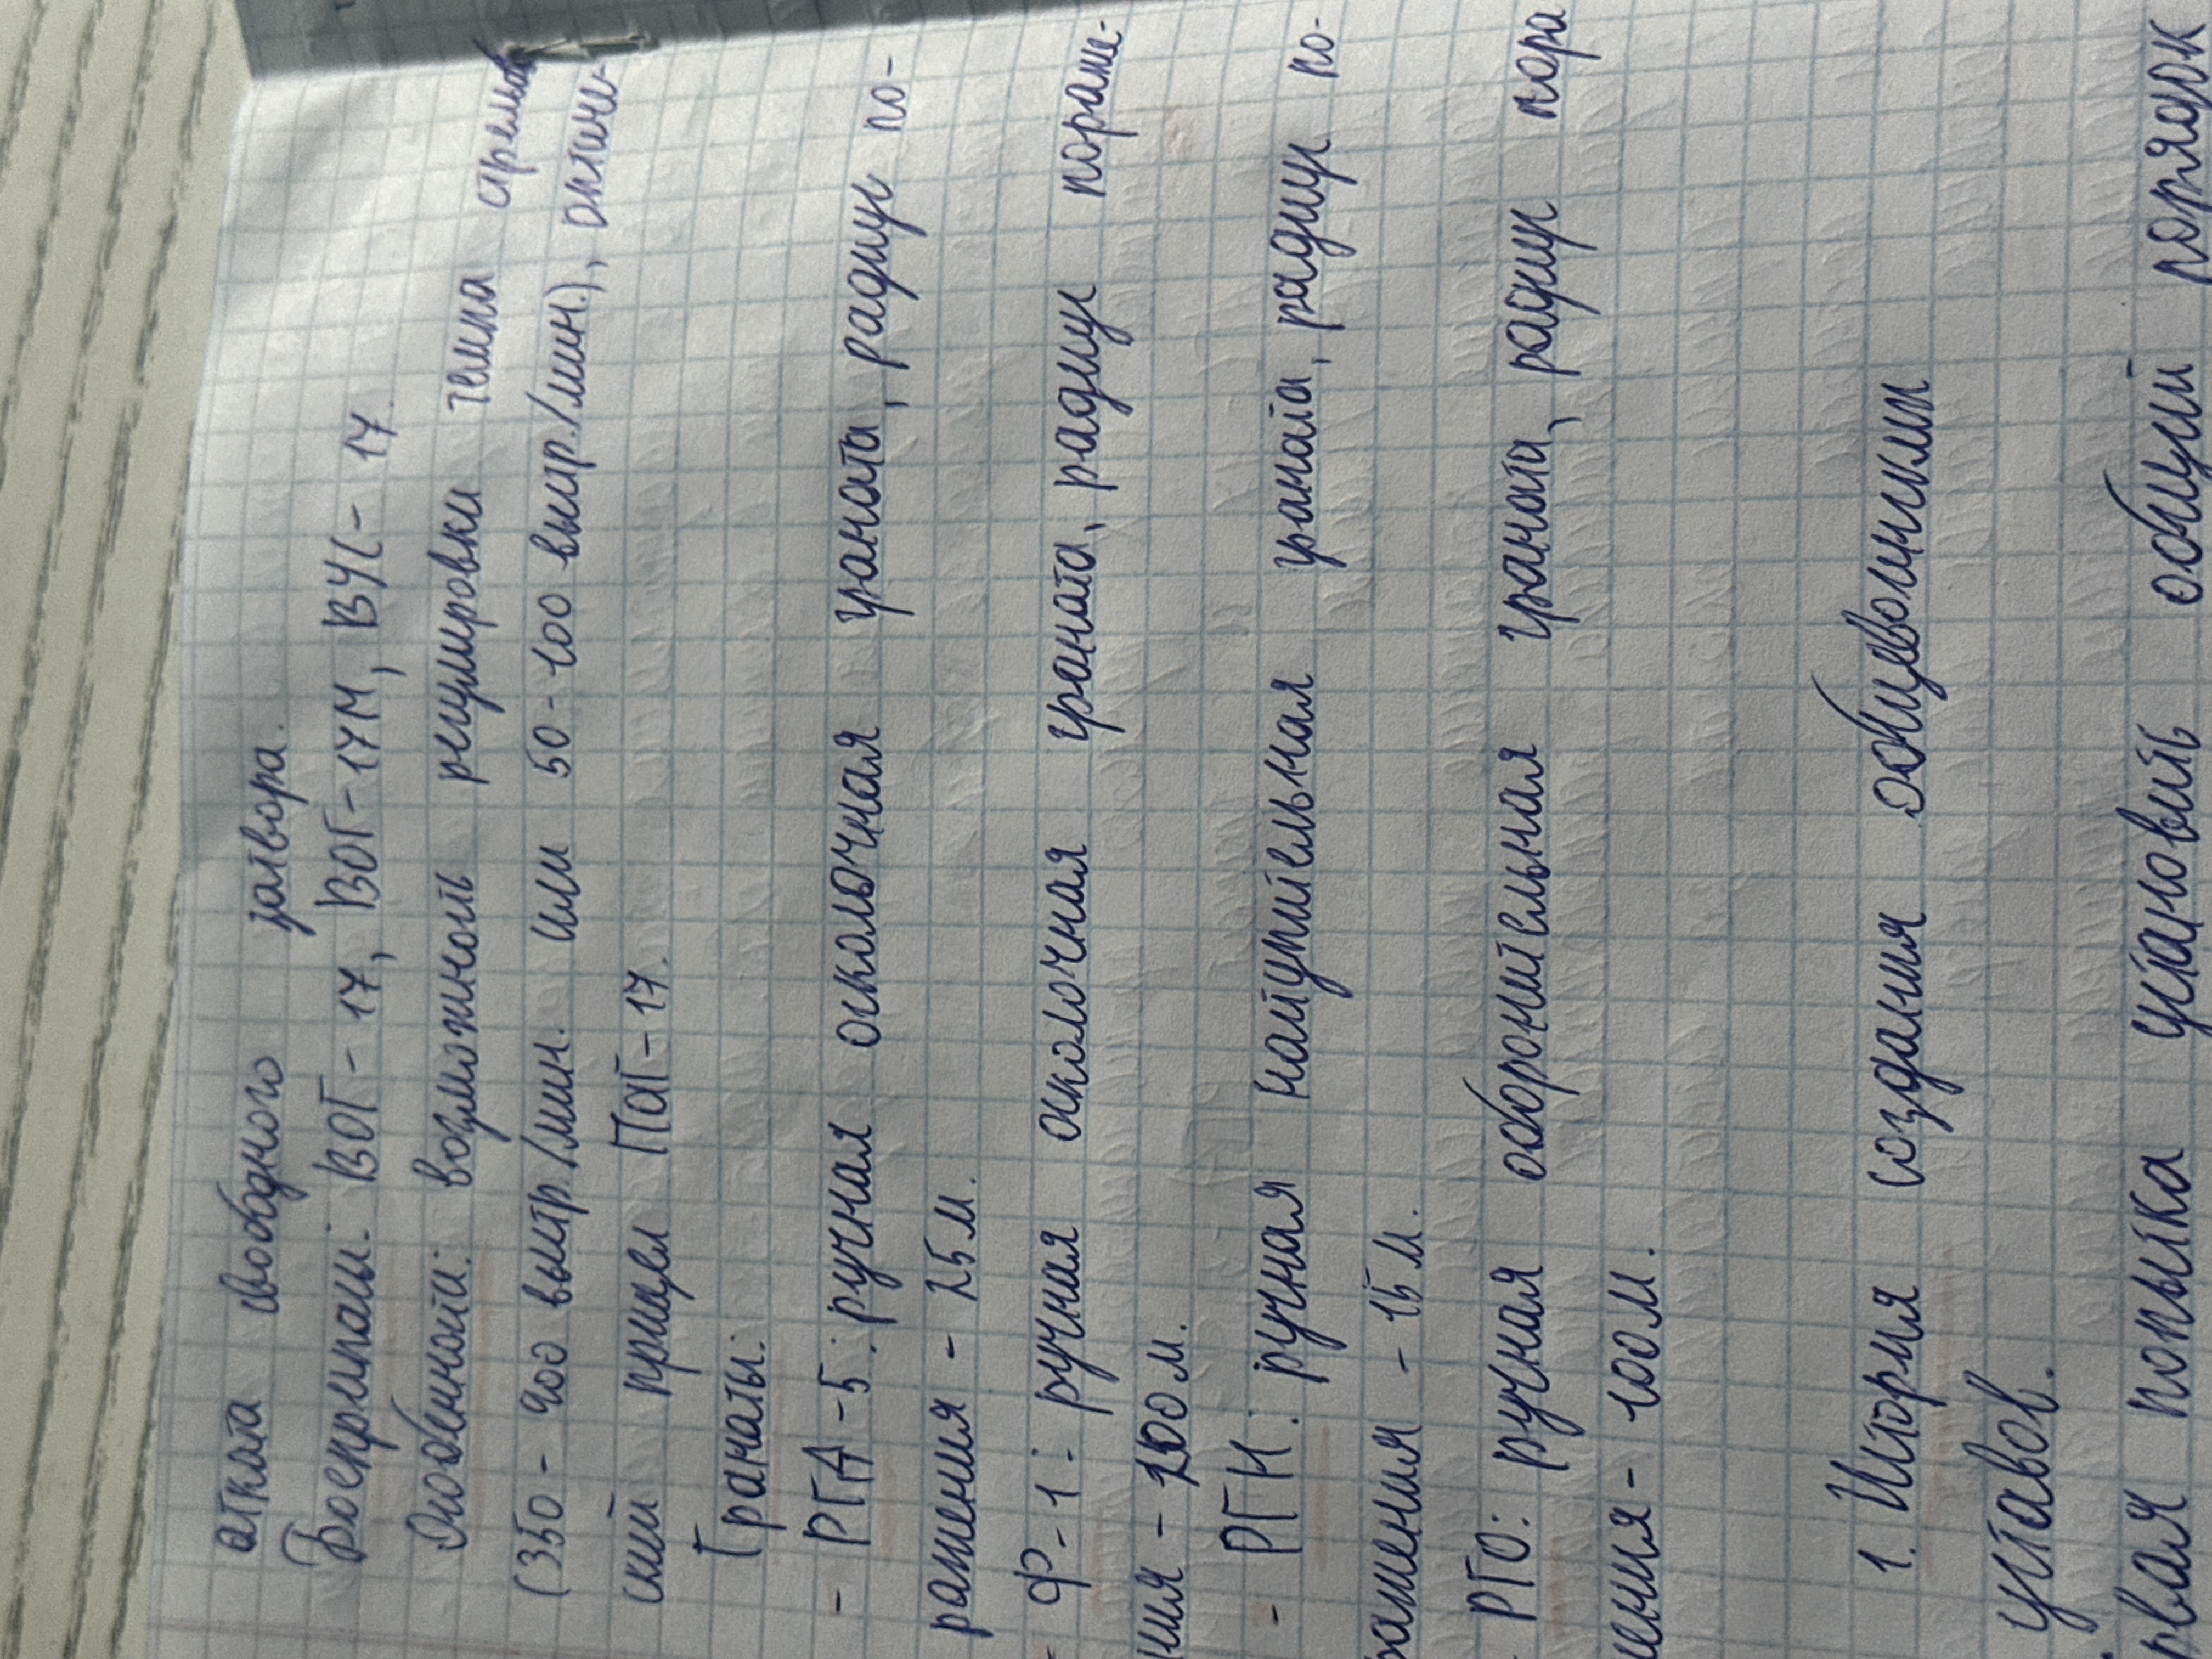 откат свободного затвора.
Боеприпасы: ВОГ-17, ВОГ-17М, ВУС-17.
Особенности: возможность регулировки темпа стрельбы
(350-400 выстр./мин. или 50-100 выстр./мин.), оптиче-
ский прицел ПАГ-17.
Гранаты:
- РГД-5: ручная осколочная граната, радиус по-
ражения - 25 м.
- Ф-1: ручная осколочная граната, радиус пораже-
ния - 200 м.
- РГН: ручная наступательная граната, радиус по-
ражения - 15 м.
- РГО: ручная оборонительная граната, радиус пора
жения - 100 м.
1. История создания общевоинскими
уставов.
рвая попытка установить общий порядок